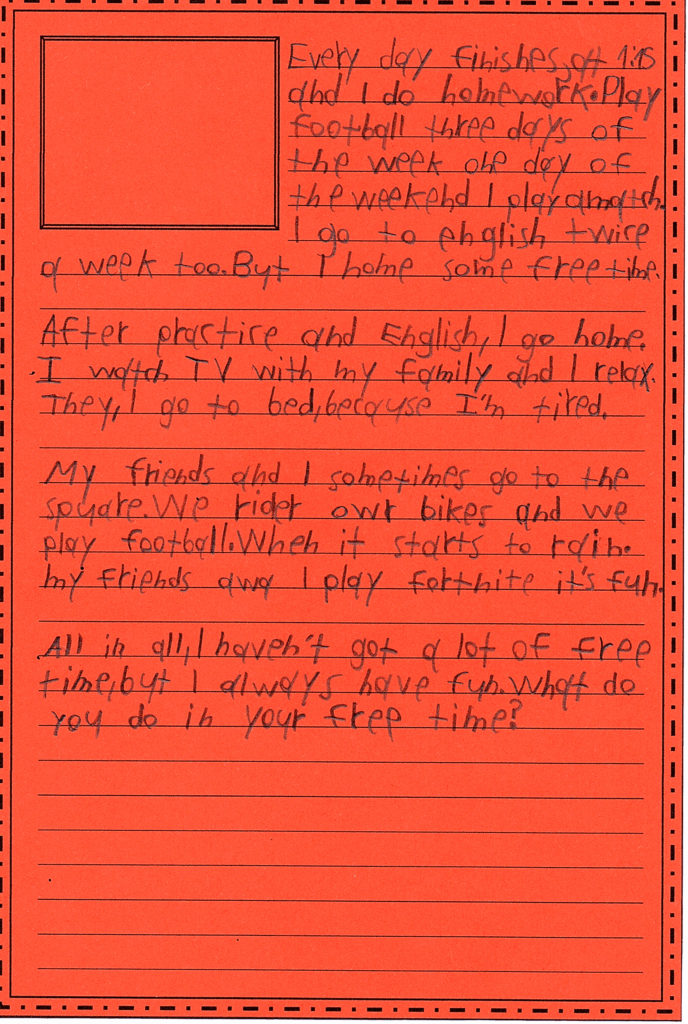 Every day finishes, at 1:15
and I do homework. Play
football three days of
the week one day of
the weekend I play a match.
I go to english twice
a week too. But I home some free time.
After practice and English, I go home.
I watch TV with my family and I relax.
They, I go to bed, because I'm tired.
My friends and I sometimes go to the
square. We rider owr bikes and we
play football. When it starts to rain.
my friends awd I play fortnite it's fun.
All in all, I haven't got a lot of free
time, but I always have fun. What do
you do in your free time?